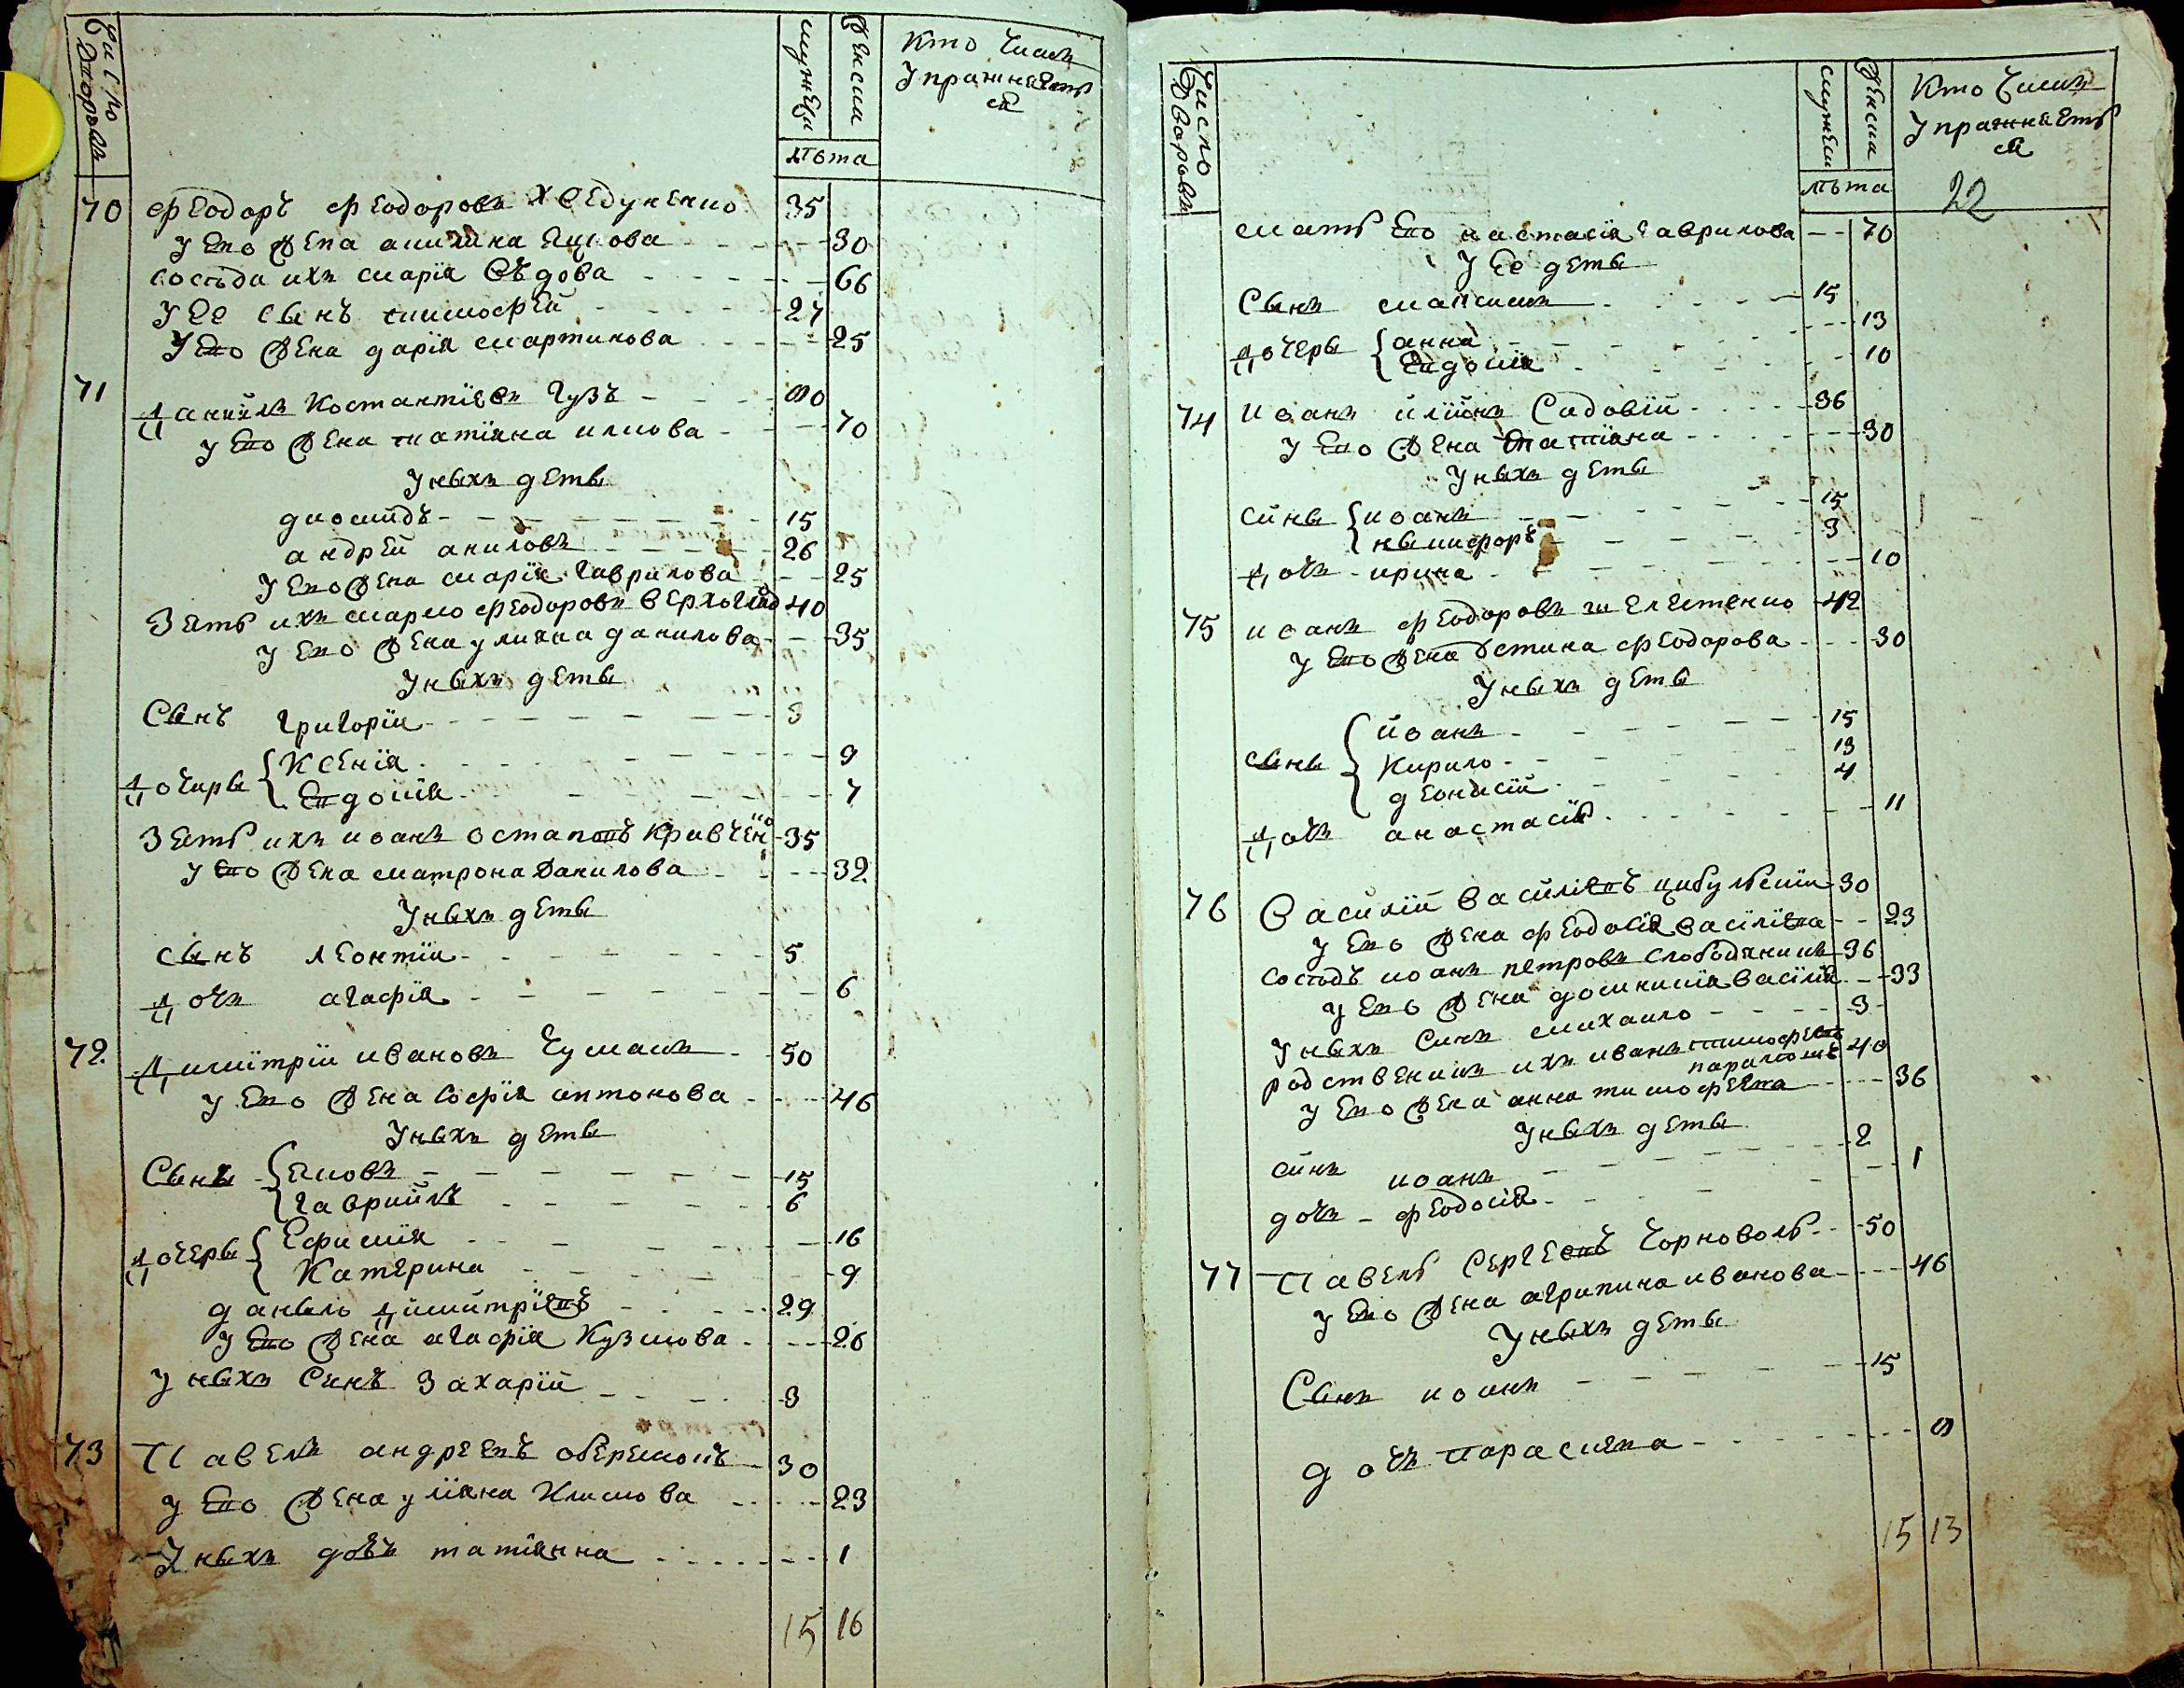 Число Дворовъ
мужеска
женска
лѣта
Кто чимъ
Упражняеть
ся
70 Феодоръ Феодоровъ Хведуненко 35
У его жена акилина Яцкова 30
сосѣда ихъ марія Сѣдова 66
У ее сынъ тимофей 27
У его жена дарія мартинова 25
71 Даниїлъ Костантіевъ Гузъ 80
У его жена татіяна илкова 70
У ныхъ деты
диомидъ 15
андрей аниловъ 26
У его жена марія гаврилова 25
Зять ихъ марко феодоровъ верхогляд 40
У его жена уліяна данилова 35
У ныхъ деты
Сынъ григорїи 3
Дочеры Ксенія 9
Евдокія 7
Зять ихъ иоанъ остаповъ кривченко 35
У его жена матрона данилова 32
У ныхъ деты
сынъ леонтїи 5
Дочь агафія 6
72 Димїтрїи ивановъ Чумакъ 50
У его жена софія антонова 46
У ныхъ деты
Сыны яковъ 15
гавриїлъ 6
Дочеры Ефимія 16
Катерина 9
даныло Димитрїевъ 29
У его жена агафія Кузмова 26
У ныхъ Синъ Захарїй 3
73 Павелъ андреевъ оберемокъ 30
У его жена уліяна Климова 23
У ныхъ дочь татіянна 1
15 16
Число Дворовъ
мужеска
женска
лѣта
Кто чимъ
Упражняеть
ся
22
мать его настасія гаврилова 70
У ее деты
Сынъ максимъ 15
Дочеры анна 13
Евдокія 10
74 Иоанъ илїинъ Садовїй 36
У его жена татіяна 30
У ныхъ деты
сины иоанъ 15
ныкифоръ 3
Дочь ирина 10
75 иоанъ феодоровъ шелестенко 42
У его жена устина феодорова 30
У ныхъ деты
сыны иоанъ 15
Кирило 13
деонисїй 4
Дочь анастасія 11
76 Василїй василїевъ цибулскїи 30
У его жена феодосія василїева 23
сосѣдъ иоанъ петровъ слободяникъ 36
У его жена домникія василія 33
У ныхъ синъ михаило 3
родственикъ ихъ иванъ тимофеевъ 40
У его жена анна тимофеева 36
У ныхъ деты
синъ иоанъ 2
дочь феодосія 1
77 Павелъ Сергеевъ Чорноволъ 50
У его жена агрипина иванова 46
У ныхъ деты
Сынъ иоанъ 15
дочь парасцева 8
15 13